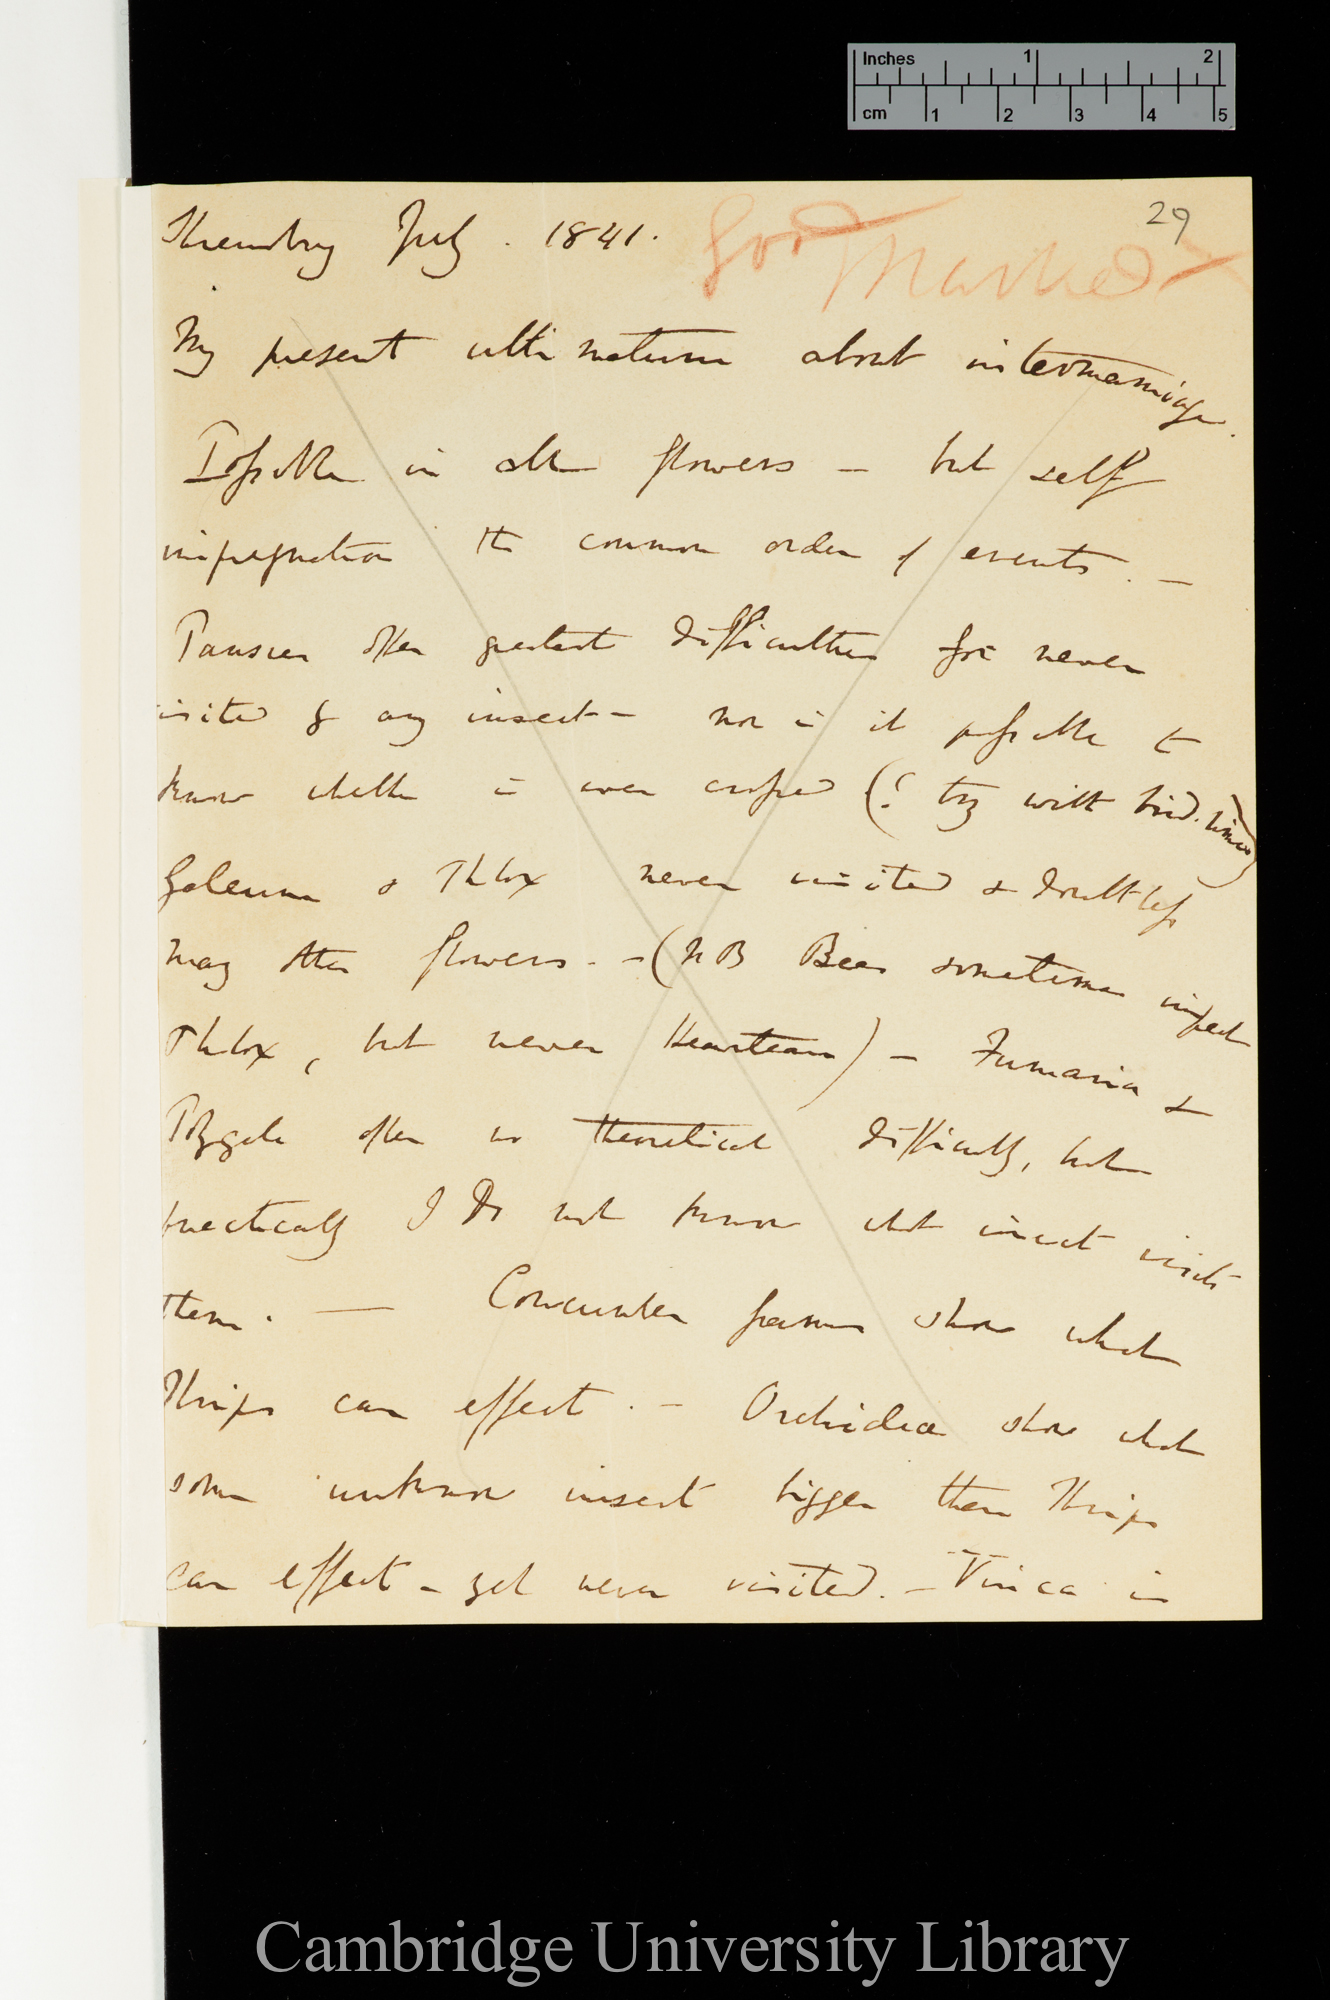 Inches 1 2
cm 1 2 3 4 5
29
Good
Marked
Shrewsbury July. 1841.
My present ultimatum about intermarriage.
Possible in all flowers — but self
impregnation the common order of events. —
Pansies offer greatest difficulties for never
visited by any insect — nor is it possible to
know whether is ever crossed (? try with
Galeum & Phlox never visited & doubtless
many other flowers. — (NB Bees sometimes infect
Phlox, but never Heartease) — Fumaria &
Polygala offer no theoretical difficulty, but
practically I do not know what insect visits
them. — Cowcumber frames show what
Thrips can effect. — Orchideæ show what
some unknown insect bigger than Thrips
can effect — yet never visited. — Vinca is
Cambridge University Library